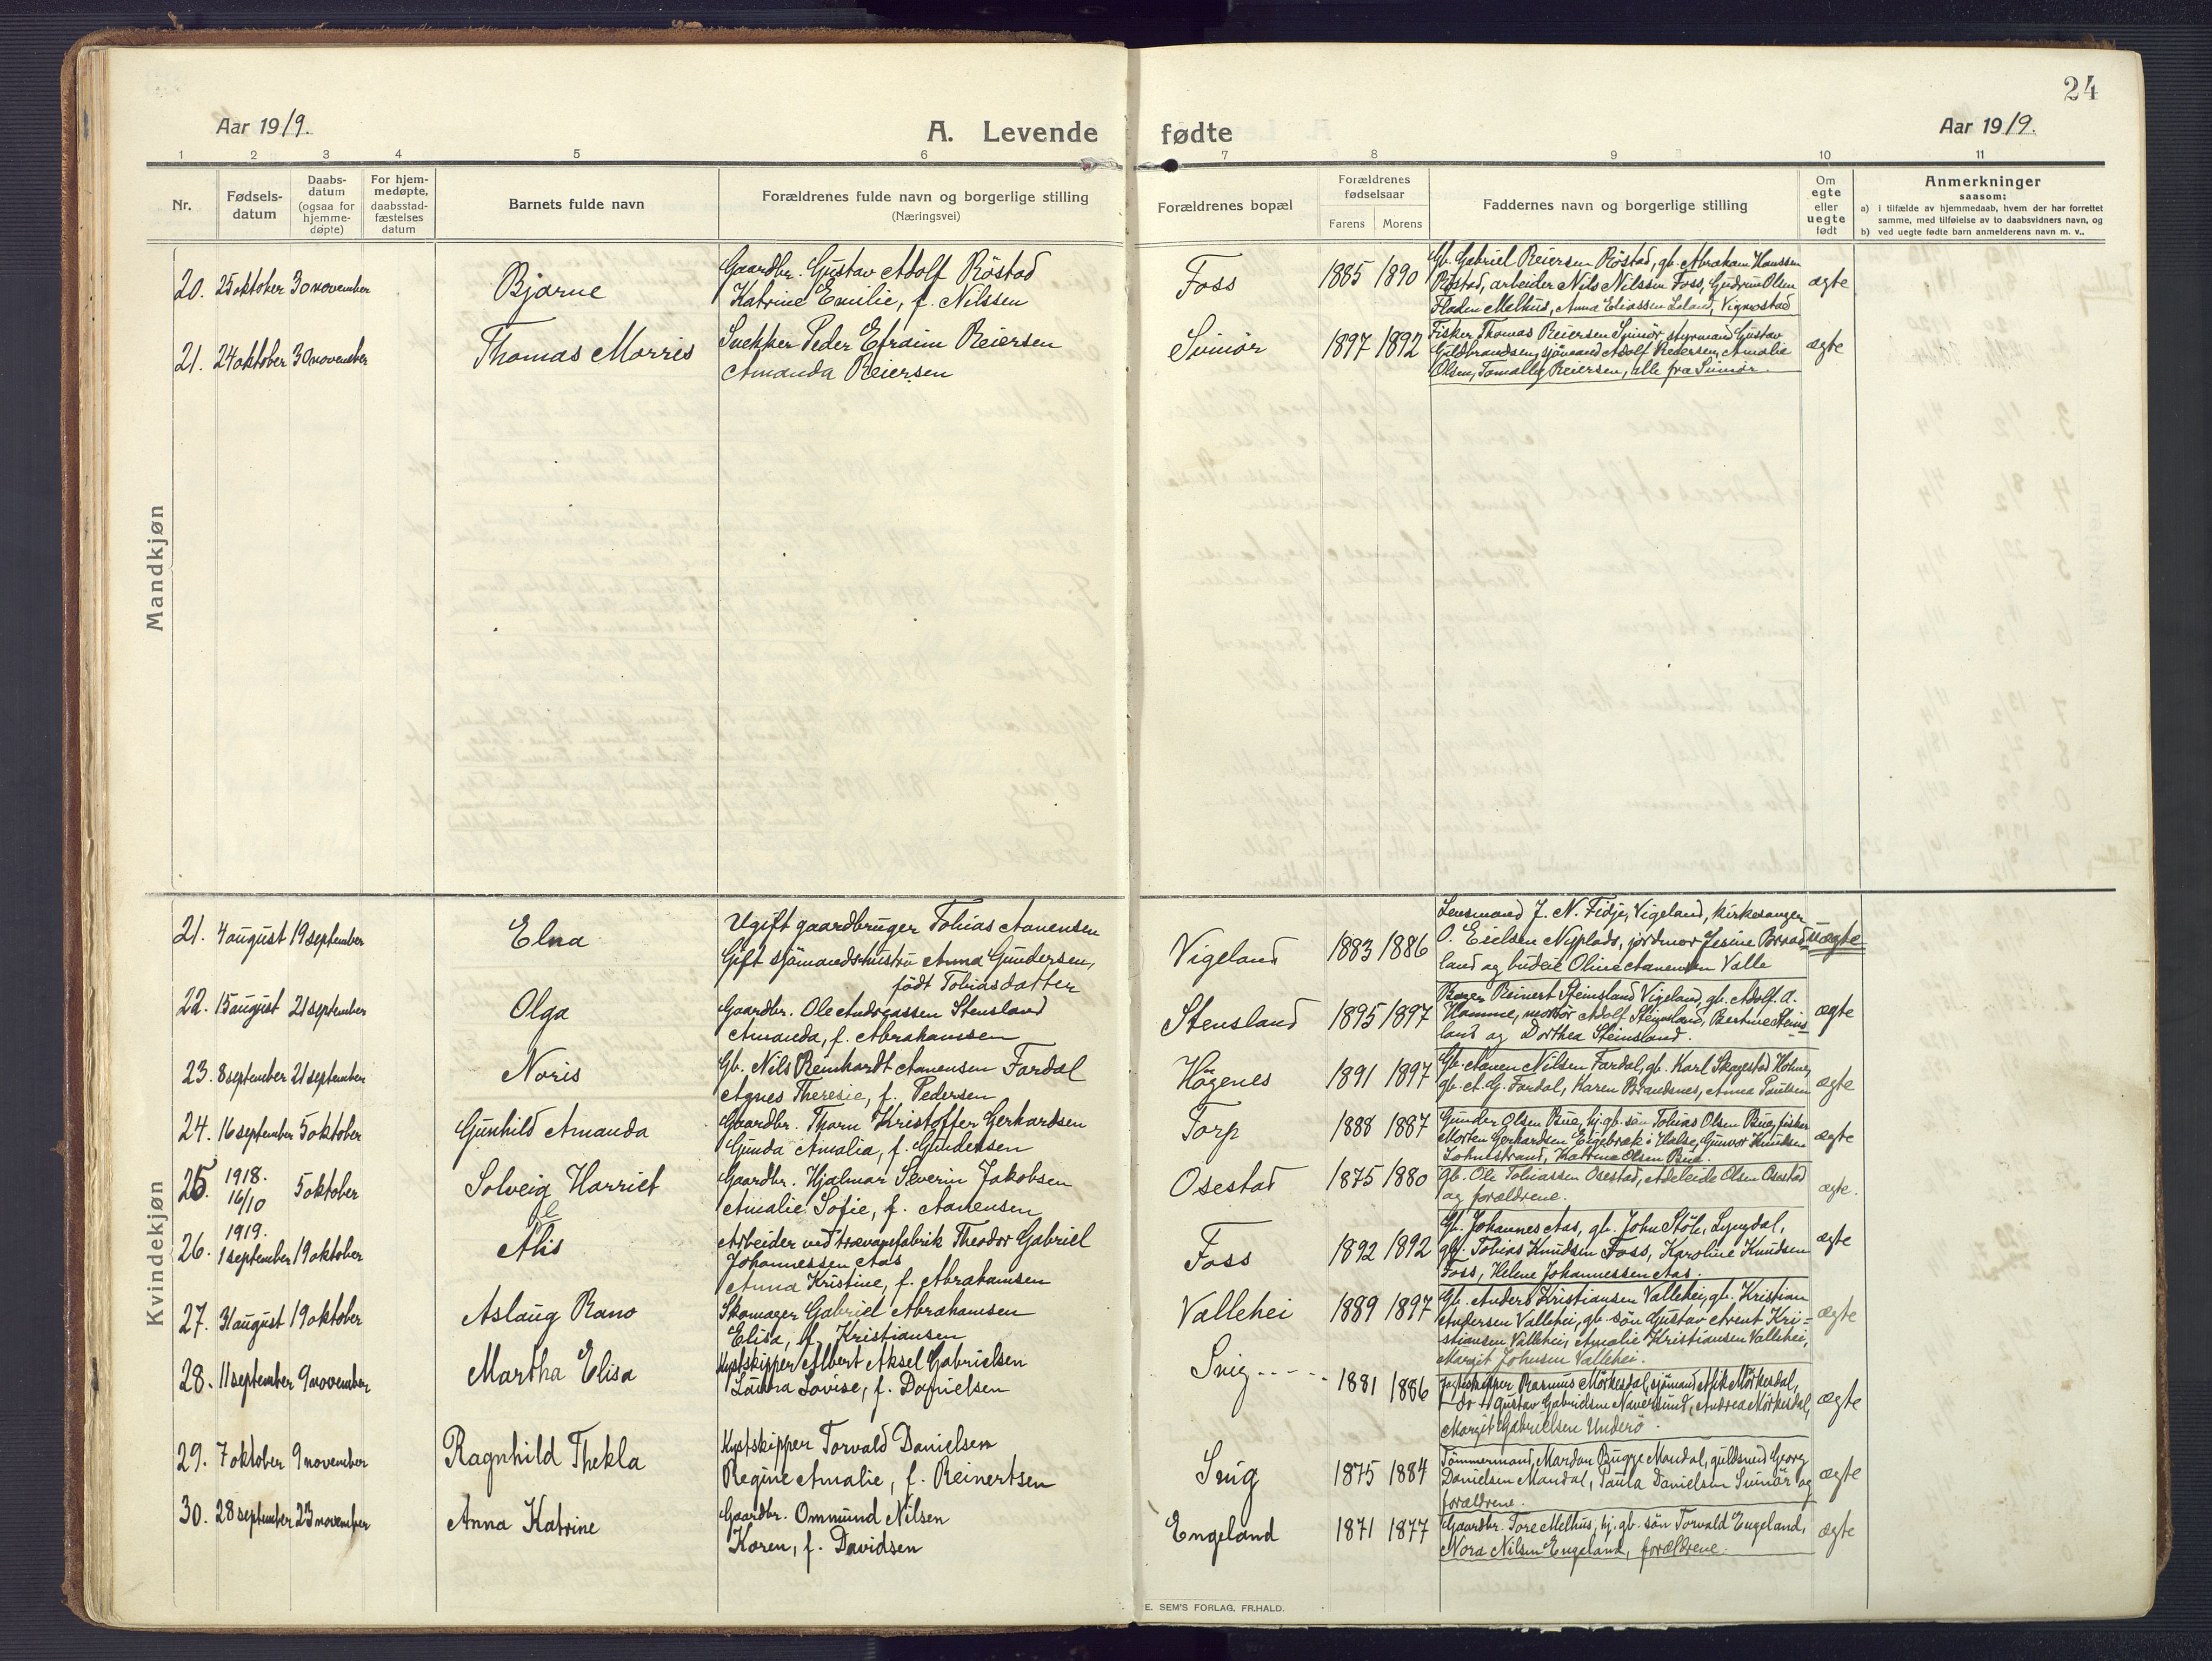 24
Aar 1919.
A. Levende fødte
Aar 1919.
1 2 3 4 5 6 7 8 9 10 11
Nr.
Fødsels-
datum
Daabs-
datum
(ogsaa for
hjemme-
døpte)
For hjem-
medøpte,
daabsstad-
fæstelses
datum
Barnets fulde navn
Forældrenes fulde navn og borgerlige stilling
(Næringsvei)
Forældrenes bopæl
Forældrenes
fødselsaar
Farens Morens
Faddernes navn og borgerlige stilling
Om
egte
eller
uegte
født
Anmerkninger
saasom:
a) i tilfælde av hjemmedaab, hvem der har forrettet
samme, med tilføielse av to daabsvidners navn, og
b) ved uegte fødte barn anmelderens navn m. v..
Mandkjøn
20. 25 oktober 30 november
Bjarne
Gaardbr. Gustav Adolf Röstad
Katrine Emilie, f. Nilssen
Foss
1885 1890
Gb. Gabriel Reiersen Röstad, gb. Abraham Hanssen
Röstad, arbeider Nils Nilssen Foss, Gudrun Olsen
Floden Melhus, Anna Eliassen Leland, Vigmostad
ægte
21. 24 oktober 30 november
Thomas Morris
Snekker Peder Efraim Reiersen
Amanda Reiersen
Svinör
1897 1892
Fisker Thomas Reiersen Svinör, styrmand Gustav
Guldbrandsen, sjömand Adolf Reiersen, Amalie
Olsen, Reiersen, alle fra Svinör.
ægte
Kvindekjøn
21. 4 august 19 september
Elna
Ugift gaardbruger Tobias Aanensen
Gift sjömandshustru Anna Gundersen,
född Tobiasdatter
Vigeland
1883 1886
Lensmand J. N. Fidje, Vigeland, kirkesanger
O. Eielsen Nyplads, jordmor Jesine Braad
land og budeie Oline Aanensen Valle
uægte
22. 15 august 21 september
Olga
Gaardbr. Ole Andreassen Stensland
Amanda, f. Abrahamssen
Stensland
1895 1897
Reinert Steinsland Vigeland, gb. Adolf A.
Hamme, Adolf Steinsland, Bertine Steins
land og Dorthea Steinsland.
ægte
23. 8 september 21 september
Noris
Gb. Nils Reinhardt Aanensen Fardal
Agnes Theresie, f. Pedersen
Högenes
1891 1897
Gb. Aanen Nilsen Fardal, gb. Karl Skagestad Holme,
gb. A. G. Fardal, Karen Brandsnes, Anna Paulsen
ægte
24. 16 september 5 oktober
Gunhild Amanda
Gaardbr. Thorn Kristoffer Gerhardsen
Gunda Amalia, f. Gundersen
Torp
1888 1887
Gunder Olsen Rue, hj. gb. sön Tobias Olsen Rue, fisker
Morten Gerhardsen Eigebræk i Halse, Gunvor Knudsen
Lohnestrand, Katrine Olsen Rue.
ægte
25. 1918.
16/10 5 oktober
Solveig Harriet
Gaardbr. Hjalmar Severin Jakobsen
Amalie Sofie, f. Aanensen
Osestad
1875 1880
gb. Ole Tobiassen Osestad, Adeleide Olsen Osestad
og forældrene.
ægte.
26. 1919.
1 september 19 oktober
Alis
Arbeider ved trævarefabrik Theodor Gabriel
Johannessen Aas
Anna Kristine, f. Abrahamsen
Foss
1892 1892
Gb. Johannes Aas, gb. John Stöle, Lyngdal,
gb. Tobias Knudsen Foss, Karoline Knudsen
Foss, Helene Johannessen Aas.
ægte
27. 31 august 19 oktober
Aslaug Rano
Skomager Gabriel Abrahamsen
Elisa, f. Kristiansen
Vallehei
1889 1897
Gb. Anders Kristiansen Vallehei, gb. Kristian
Andersen Vallehei, gb. sön Gustav Arent Kri-
stiansen Vallehei, Amalie Kristiansen Vallehei,
Margit Johnsen Vallehei.
ægte
28. 11 september 9 november
Martha Elisa
Kystskipper Albert Aksel Gabrielsen
Laura Lovise, f. Danielsen
Snig
1881 1886
Jagtskipper Rasmus Mörkesdal, sjömand Mörkesdal,
do Gustav Gabrielsen Naversund, Andrea Mörkesdal,
Margit Gabrielsen Underö.
ægte
29. 7 oktober 9 november
Ragnhild Thekla
Kystskipper Torvald Danielsen
Regine Amalie, f. Reinertsen
Snig
1875 1884
Tömmermand Mardon Bugge Mandal, guldsmed Georg
Danielsen Mandal, Paula Danielsen Svinör og
forældrene.
ægte
30. 28 september 23 november
Anna Katrine
Gaardbr. Ommund Nilsen
Karen, f. Davidsen
Engeland
1871 1877
Gaardbr. Tore Melhus, hj. gb. sön Torvald Engeland,
Nora Nilsen Engeland, forældrene.
ægte
E. SEM'S FORLAG, FR.HALD.